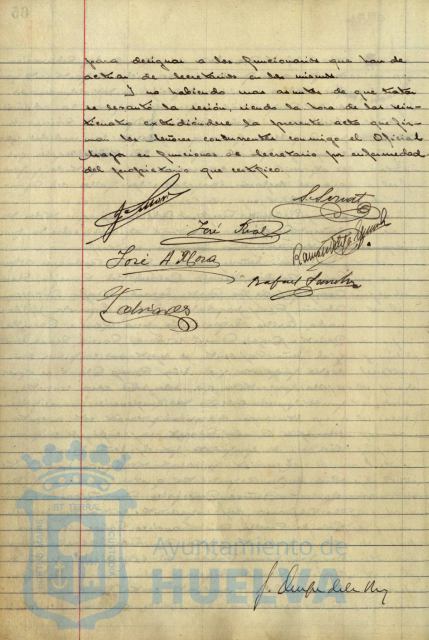 para designar a los funcionarios que han de
actuar de Secretarios en los mismos.
Y no habiendo mas asuntos de que tratar
se levantó la sesión, siendo la hora de las veinticuatro
extendiéndose la presente acta que firman
los Señores concurrentes conmigo el Oficial
Mayor en funciones de Secretario por enfermedad
del propietario que certifico.
José Real
José A Mora
Rafael
Ayuntamiento de
HUELVA